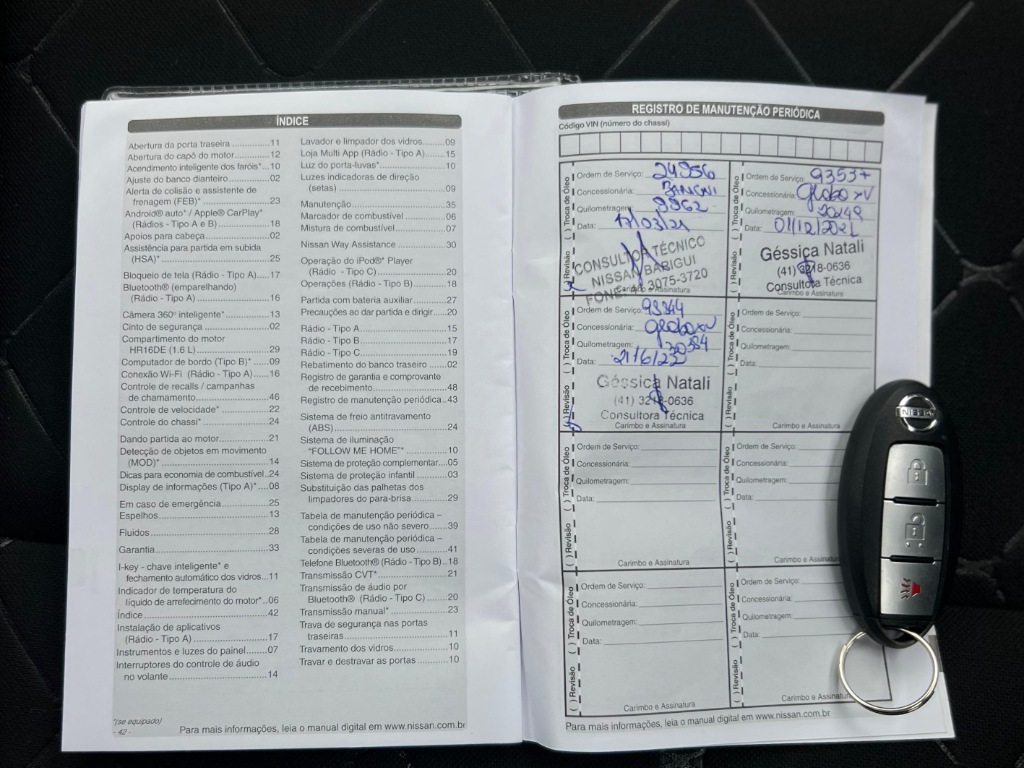 ÍNDICE
Abertura da porta traseira 11
Abertura do capô do motor 12
Acendimento inteligente dos faróis* 10
Ajuste do banco dianteiro 02
Alerta de colisão e assistente de
frenagem (FEB)* 23
Android® auto* / Apple® CarPlay*
(Rádios - Tipo A e B) 18
Apoios para cabeça 02
Assistência para partida em subida
(HSA)* 25
Bloqueio de tela (Rádio - Tipo A) 17
Bluetooth® (emparelhando)
(Rádio - Tipo A) 16
Câmera 360º inteligente* 13
Cinto de segurança 02
Compartimento do motor
HR16DE (1.6 L) 29
Computador de bordo (Tipo B)* 09
Conexão Wi-Fi (Rádio - Tipo A) 16
Controle de recalls / campanhas
de chamamento 46
Controle de velocidade* 22
Controle do chassi* 24
Dando partida ao motor 21
Detecção de objetos em movimento
(MOD)* 14
Dicas para economia de combustível 24
Display de informações (Tipo A)* 08
Em caso de emergência 25
Espelhos 13
Fluidos 28
Garantia 33
I-key - chave inteligente* e
fechamento automático dos vidros 11
Indicador de temperatura do
líquido de arrefecimento do motor* 06
Índice 42
Instalação de aplicativos
(Rádio - Tipo A) 17
Instrumentos e luzes do painel 07
Interruptores do controle de áudio
no volante 14
Lavador e limpador dos vidros 09
Loja Multi App (Rádio - Tipo A) 15
Luz do porta-luvas* 10
Luzes indicadoras de direção
(setas) 09
Manutenção 35
Marcador de combustível 06
Mistura de combustível 07
Nissan Way Assistance 30
Operação do iPod® Player
(Rádio - Tipo C) 20
Operações (Rádio - Tipo B) 18
Partida com bateria auxiliar 27
Precauções ao dar partida e dirigir 20
Rádio - Tipo A 15
Rádio - Tipo B 17
Rádio - Tipo C 19
Rebatimento do banco traseiro 02
Registro de garantia e comprovante
de recebimento 48
Registro de manutenção periódica 43
Sistema de freio antitravamento
(ABS) 24
Sistema de iluminação
"FOLLOW ME HOME"* 10
Sistema de proteção complementar 05
Sistema de proteção infantil 03
Substituição das palhetas dos
limpadores do para-brisa 29
Tabela de manutenção periódica –
condições de uso não severo 39
Tabela de manutenção periódica –
condições severas de uso 41
Telefone Bluetooth® (Rádio - Tipo B) 18
Transmissão CVT* 21
Transmissão de áudio por
Bluetooth® (Rádio - Tipo C) 20
Transmissão manual* 23
Trava de segurança nas portas
traseiras 11
Travamento dos vidros 10
Travar e destravar as portas 10
*(se equipado)
- 42 -
Para mais informações, leia o manual digital em www.nissan.com.br
REGISTRO DE MANUTENÇÃO PERIÓDICA
Código VIN (número do chassi)
( ) Revisão ( ) Troca de Óleo
Ordem de Serviço: 24956
Concessionária:
Quilometragem: 9962
Data: 17/03/21
CONSULTOR TÉCNICO
NISSAN BARIGUI
FONE: 3075-3720
Carimbo e Assinatura
( ) Revisão ( ) Troca de Óleo
Ordem de Serviço: 93537
Concessionária: Globo
Quilometragem: 20249
Data: 01/12/2021
Géssica Natali
(41) 3218-0636
Consultora Técnica
Carimbo e Assinatura
( ) Revisão ( ) Troca de Óleo
Ordem de Serviço: 93344
Concessionária: Globo
Quilometragem: 30384
Data: 21/6/22
Géssica Natali
(41) 3218-0636
Consultora Técnica
Carimbo e Assinatura
( ) Revisão ( ) Troca de Óleo
Ordem de Serviço:
Concessionária:
Quilometragem:
Data:
Carimbo e Assinatura
( ) Revisão ( ) Troca de Óleo
Ordem de Serviço:
Concessionária:
Quilometragem:
Data:
Carimbo e Assinatura
( ) Revisão ( ) Troca de Óleo
Ordem de Serviço:
Concessionária:
Quilometragem:
Data:
( ) Revisão ( ) Troca de Óleo
Ordem de Serviço:
Concessionária:
Quilometragem:
Data:
Carimbo e Assinatura
( ) Revisão ( ) Troca de Óleo
Ordem de Serviço:
Concessionária:
Quilometragem:
Data:
Carimbo e Assinatura
Para mais informações, leia o manual digital em www.nissan.com.br
NISSAN